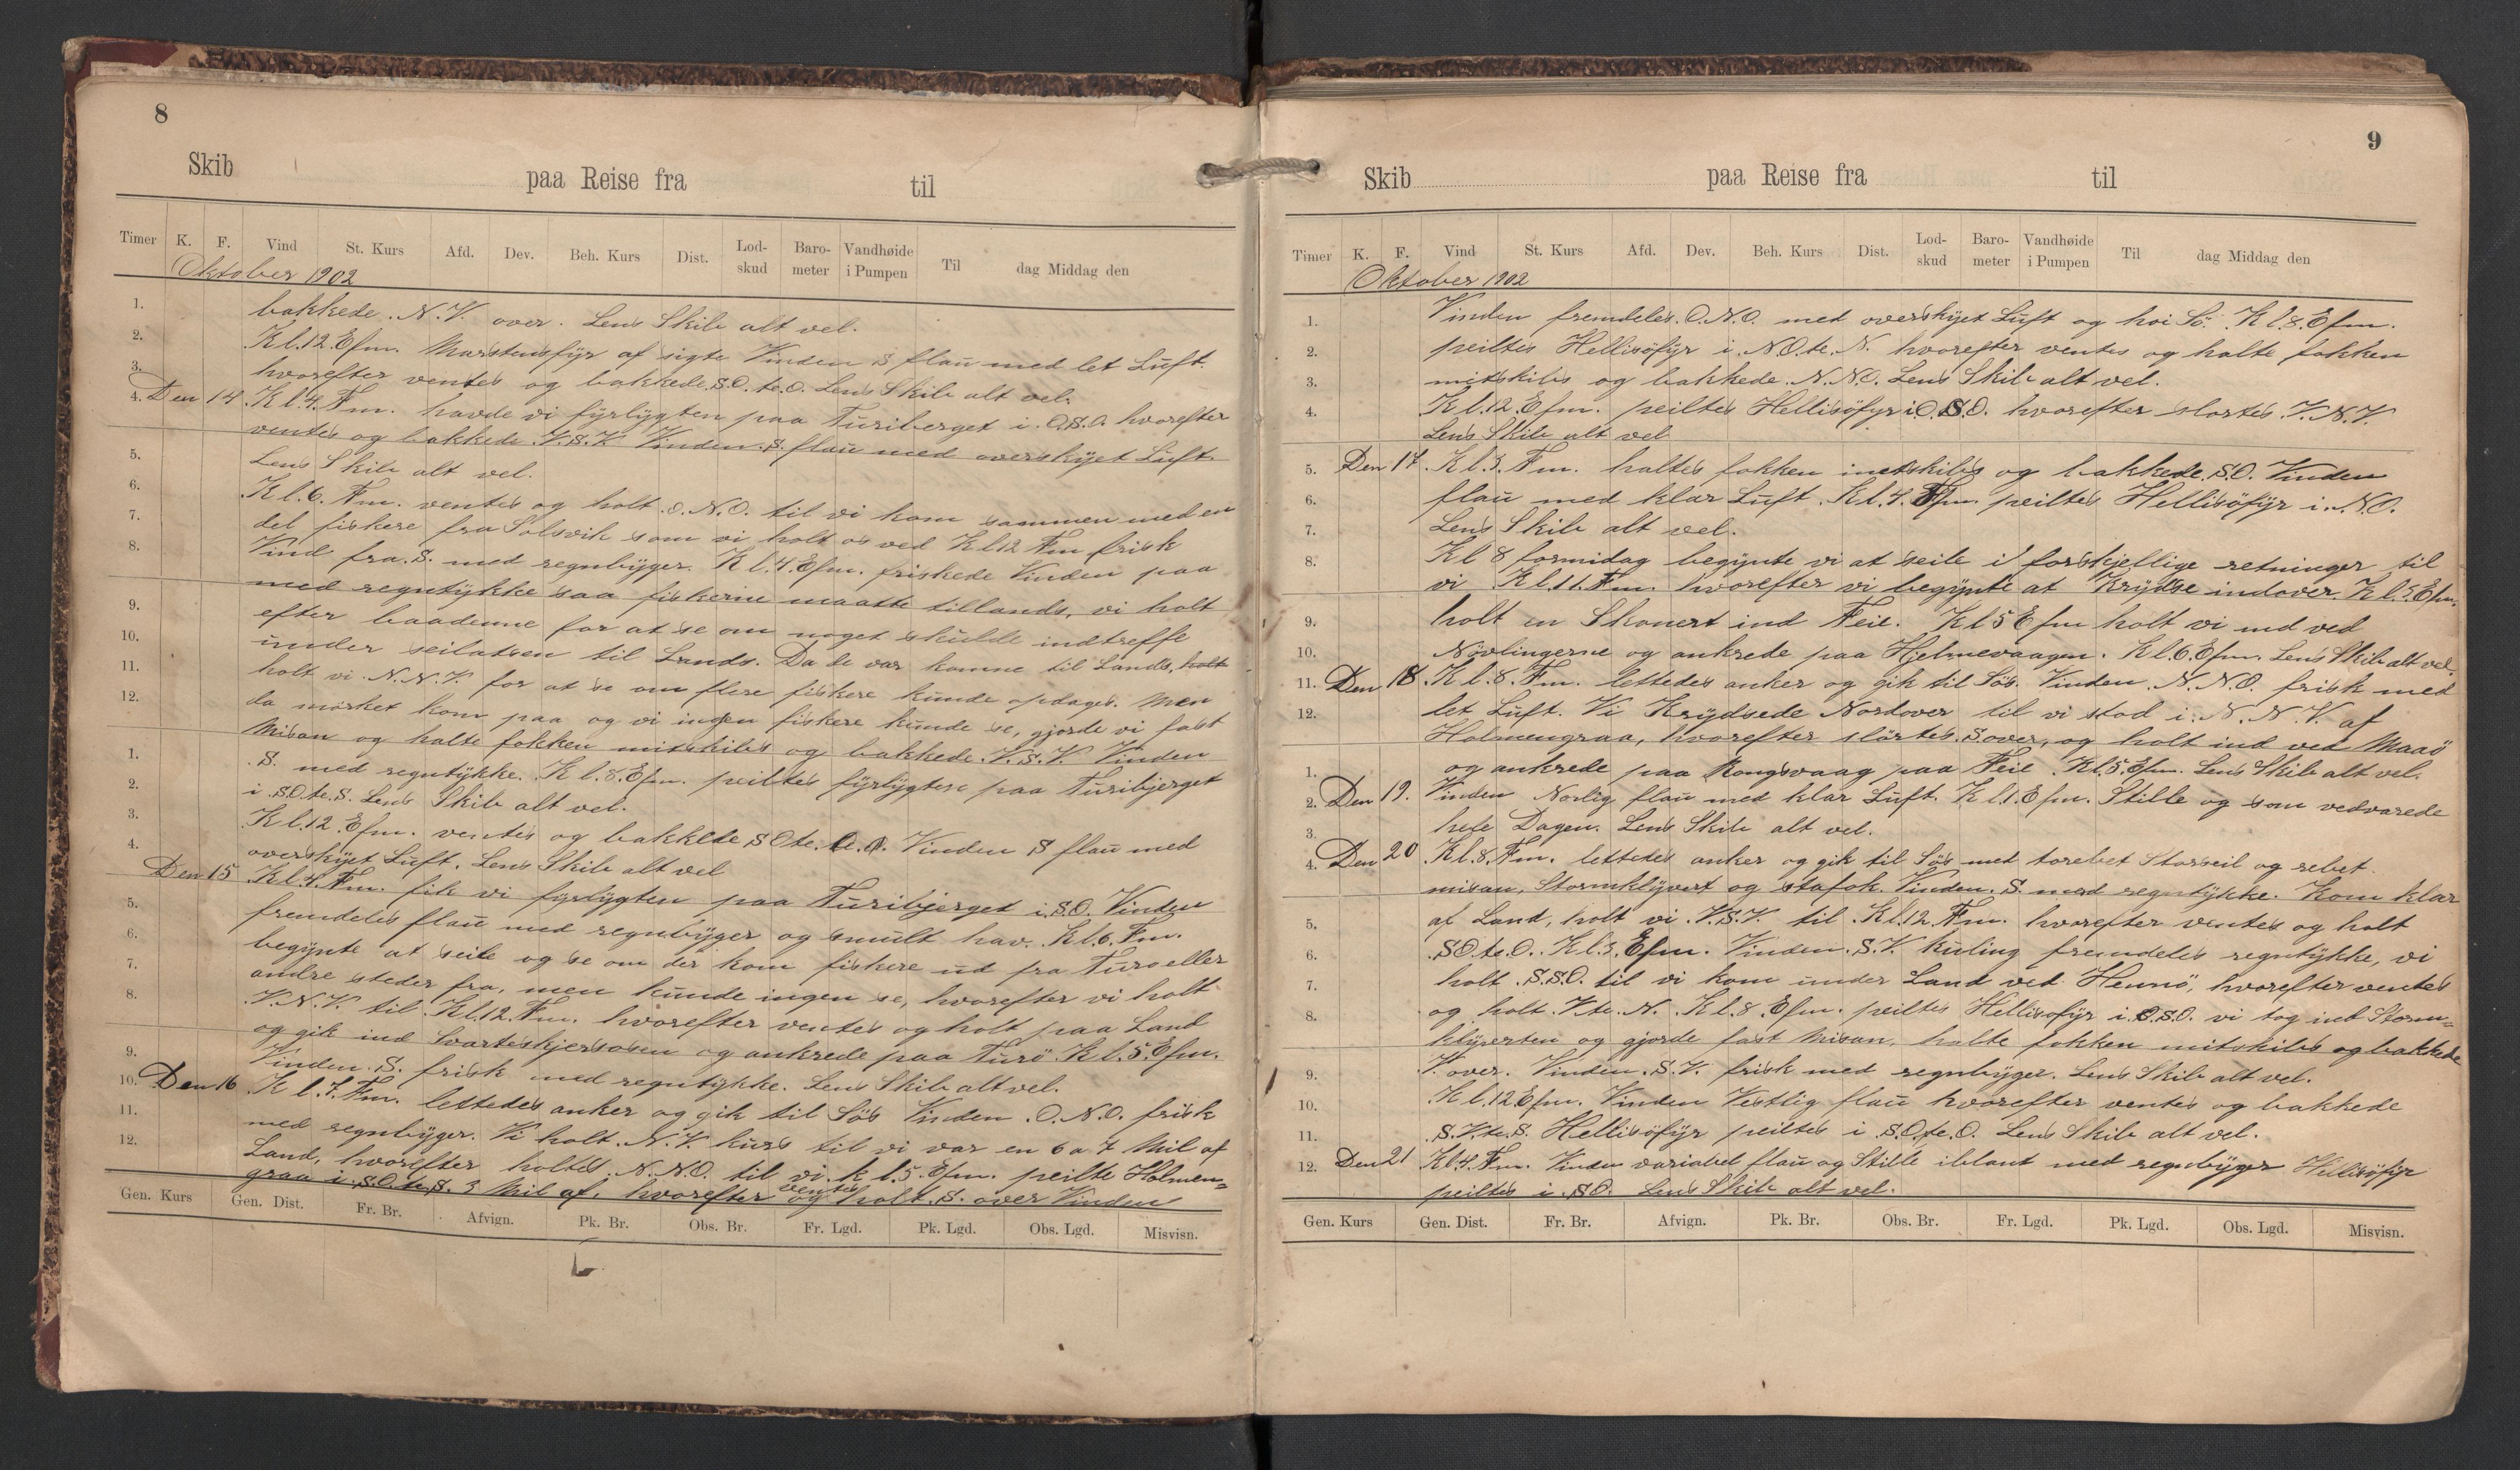 8
Skib paa Reise fra til
Timer K. F. Vind St. Kurs Afd. Dev. Beh. Kurs Dist. Lod-skud Baro-meter Vandhøide i Pumpen Til dag Middag den
Oktober 1902
bakkede. N.V. over. Lens Skib alt vel.
Kl.12.Efm. Marstensfÿr af sigte Vinden S flaü med let Lüft.
hvorefter ventes og bakkede. S.O. te. O. Lens Skib alt vel.
Den 14. Kl.4. Fm. havde vi fÿrlÿgten paa Turiberget i. O.S.O. hvorefter
ventes og bakkede. V.S.V. Vinden. S. flaü med overskÿet Lüft.
Lens Skib alt vel.
Kl.6. Fm. ventes og holt. O.N.O. til vi kom sammen med en
del fiskere fra Solsvik som vi holt os ved Kl 12 Fm frisk
Vind fra. S. med regnbÿger. Kl.4. Efm. friskede Vinden paa
med regntÿkke saa fiskerne maatte tillands, vi holt
efter baadenne for at se om noget skülde indtreffe
ünder seilatsen til Lands. Da de var komne til Lands, holt
holt vi N.N.V. for at se om flere fiskere künde opdages. Men
da mørket kom paa og vi ingen fiskere künde se, gjorde vi fast
Misan og halte fokken mitskibs og bakkede. V.S.V. Vinden
S. med regntÿkke. Kl.8. Efm. peiltes fÿrlÿgten paa Türibjerget
i. S.O. te. S. Lens Skib alt vel.
Kl.12. Efm. ventes og bakkede S O te. O. Vinden S flaü med
overskÿet Lüft. Lens Skib alt vel
Den 15. Kl.4. Fm. fik vi fÿrlÿgten paa Türibjerget i. S.O. Vinden
fremdeles flaü med regnbÿger og smült hav. Kl.6. Fm.
begÿnte at seile og se om der kom fiskere üd fra Türo eller
andre steder fra, men künde ingen se, hvorefter vi holt
V.N.V. til Kl.12. Fm. hvorefter ventes og holt paa Land
og gik ind Svarteskjersosen og ankrede paa Türö Kl.5. Efm.
Vinden. S. frisk med regntÿkke. Lens Skib alt vel.
Den 16 Kl.7. Fm. lettedes anker og gik til Søs Vinden. O.N.O. frisk
med regnbÿger. Vi holt. N.V. kurs til vi var en 6 a 7 Mil af
Land, hvorefter holtes. N.N.O. til vi kl.5. Efm. peilte Holmen=
graa i. S.O. te. S. 3 Mil af, hvorefter ventes og holt. S. over Vinden
1. 2. 3. 4. 5. 6. 7. 8. 9. 10. 11. 12. 1. 2. 3. 4. 5. 6. 7. 8. 9. 10. 11. 12.
Gen. Kurs Gen. Dist. Fr. Br. Afvign. Pk. Br. Obs. Br. Fr. Lgd. Pk. Lgd. Obs. Lgd. Misvisn.
9
Skib paa Reise fra til
Timer K. F. Vind St. Kurs Afd. Dev. Beh. Kurs Dist. Lod-skud Baro-meter Vandhøide i Pumpen Til dag Middag den
Oktober 1902
Vinden fremdeles. O.N.O. med overskÿet Lüft og hoi Sö. Kl.8. Efm.
peiltes Hellisöfÿr i. N.O. te. N. hvorefter ventes og halte fokken
mitskibs og bakkede. N.N.O. Lens Skib alt vel.
Kl.12 Efm. peiltes Hellisöfÿr i O.S.O. hvorefter slørtes. V.N.V.
Lens Skib alt vel
Den 17. Kl.3. Fm. haltes fokken mitskibs og bakkede. S.O. Vinden
flaü med klar Lüft. Kl.4. Fm peiltes Hellisöfÿr i. N.O.
Lens Skib alt vel.
Kl 8 formidag begÿnte vi at seile i forskjeflige retninger til
vi Kl.11. Fm. hvorefter vi begÿnte at krÿdse indover. Kl.3 Efm.
holt en Skonert ind Feie. Kl 5 Efm holt vi ind ved
Növlingerne og ankrede paa Hjelmevaagen. Kl.6. Efm. Lens Skib alt vel.
Den 18. Kl.8. Fm. lettedes anker og gik til Søs. Vinden. N.N.O. frisk med
let Lüft. Vi Krÿdsede Nordover til vi stod i. N.N.V. af
Holmengraa, hvorefter slörtes. S over, og holt ind ved Maaö
og ankrede paa Rongsvaag paa Feie. Kl.5. Efm. Lens Skib alt vel.
Den 19. Vinden Norlig flaü med klar Lüft. Kl.1. Efm. Stille og som vedvarede
hele Dagen. Lens Skib alt vel.
Den 20 Kl.8. Fm. lettedes anker og gik til Søs med torebet Storseil og rebet
misan, Stormklÿvert og stafok. Vinden. S. med regntÿkke. Kom klar
af Land, holt vi V.S.V. til Kl.12. Fm. hvorefter ventes og holt
S.O. te. O. Kl.3. Efm. Vinden. S.V. küling fremdeles regntÿkke, vi
holt. S.S.O. til vi kom ünder Land ved Hennö, hvorefter ventes
og holt V. te. N. Kl.8. Efm. peiltes Hellisofÿr i. O.S.O. vi tog ind Storm=
klÿverten og gjorde fast Misan, halte fokken mitskibs og bakkede
V. over. Vinden. S.V. frisk med regnbÿger. Lens Skib alt vel.
Kl.12 Efm. Vinden Vestlig flaü hvorefter ventes og bakkede
S.V. te. S. Hellisöfÿr peiltes i S.O. te. O. Lens Skib alt vel.
Den 21 Kl.4. Fm. Vinden variabel flaü og Stille iblant med regnbÿger Hellisöfÿr
peiltes i. S.O. Lens Skib alt vel.
1. 2. 3. 4. 5. 6. 7. 8. 9. 10. 11. 12. 1. 2. 3. 4. 5. 6. 7. 8. 9. 10. 11. 12.
Gen. Kurs Gen. Dist. Fr. Br. Afvign. Pk. Br. Obs. Br. Fr. Lgd. Pk. Lgd. Obs. Lgd. Misvisn.